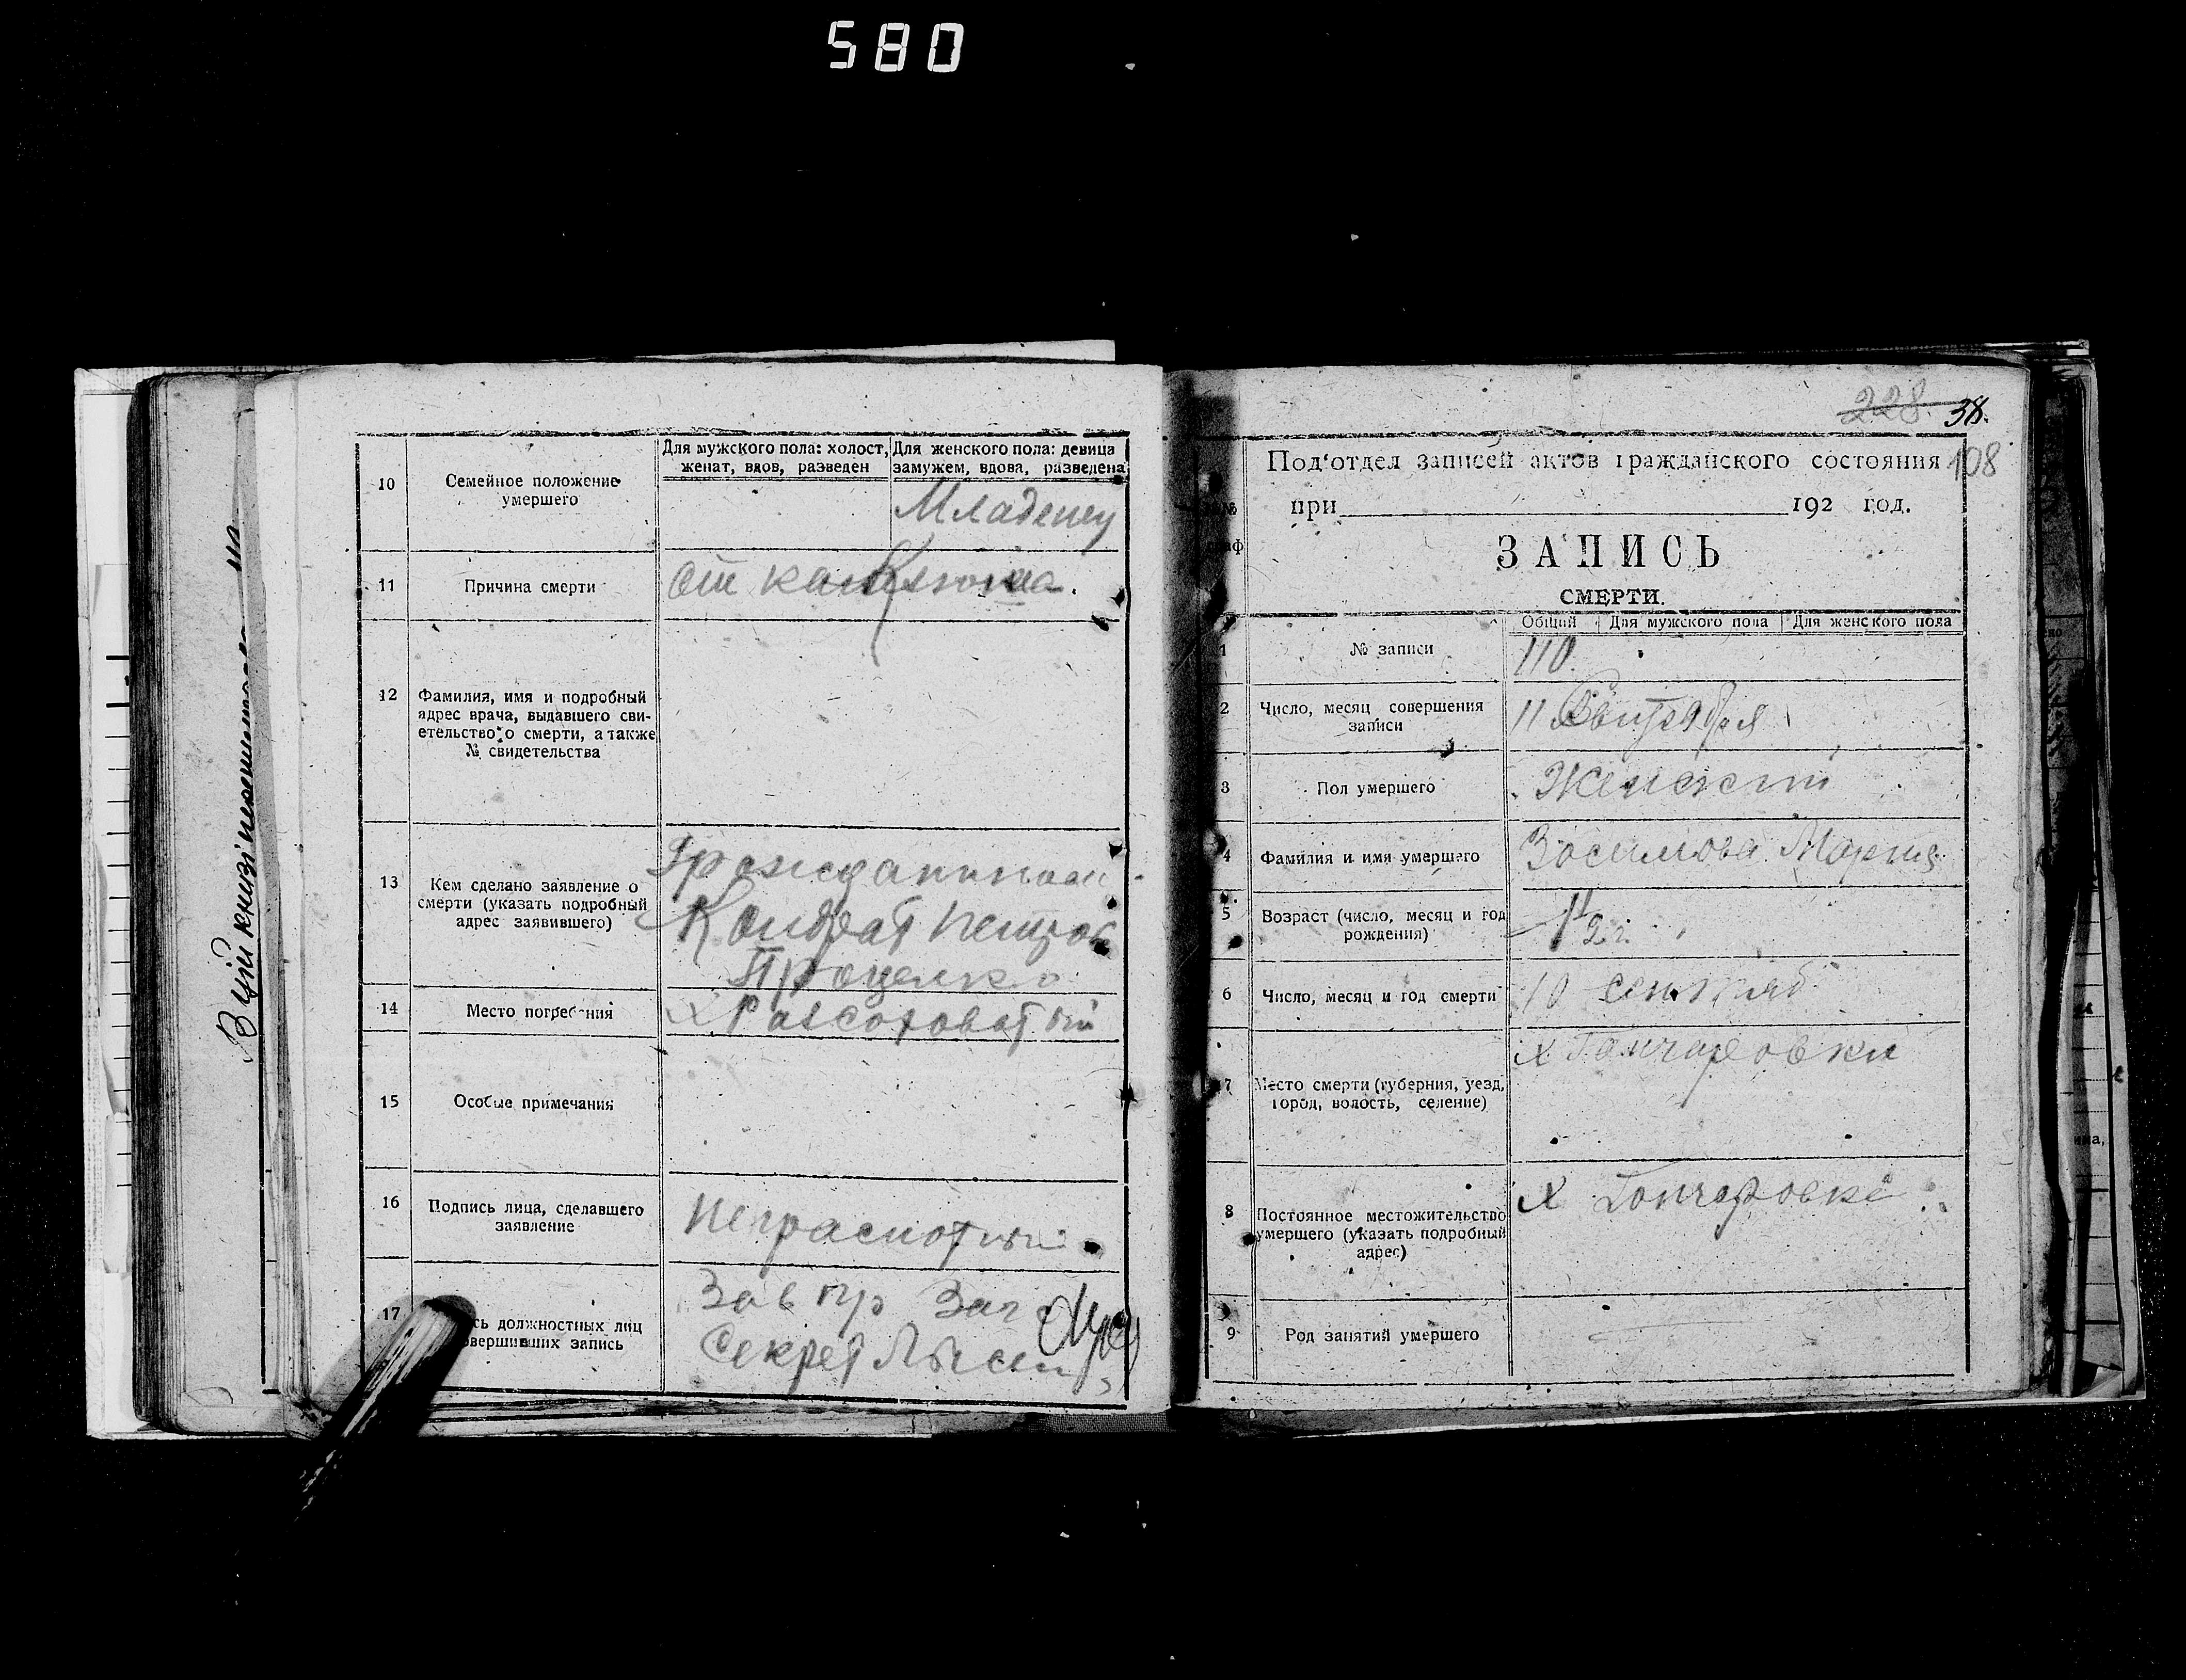 580
В цій книзі
10
Семейное положение
умершего
Для мужского пола: холост,
женат, вдов, разведен
Для женского пола: девица
замужем, вдова, разведена
Младенец
11
Причина смерти
От
12
Фамилия, имя и подробный
адрес врача, выдавшего сви-
етельство о смерти, а также
№ свидетельства
13
Кем сделано заявление о
смерти (указать подробный
адрес заявившего)
Гражданином
Кондрат Петров
Проценко
14
Место погребения
х Рассоховатый
15
Особые примечания
16
Подпись лица, сделавшего
заявление
Неграмотный
17
сь должностных лиц
овершивших запись
Зав пр Заг
Секрет
228 38.
108
Под'отдел записей актов гражданского состояния
при 192 год.
ЗАПИСЬ
СМЕРТИ.
Общий
Для мужского пола
Для женского пола
1
№ записи
110
2
Число, месяц совершения
записи
11 Сентября
3
Пол умершего
Женский
4
Фамилия и имя умершего
Зосимова Мария
5
Возраст (число, месяц и год
рождения)
6
Число, месяц и год смерти
10 сентяб
7
Место смерти (губерния, уезд,
город, волость, селение)
х Гончаровки
8
Постоянное местожительство
умершего (указать подробный
адрес)
х Гончаровке
9
Род занятий умершего